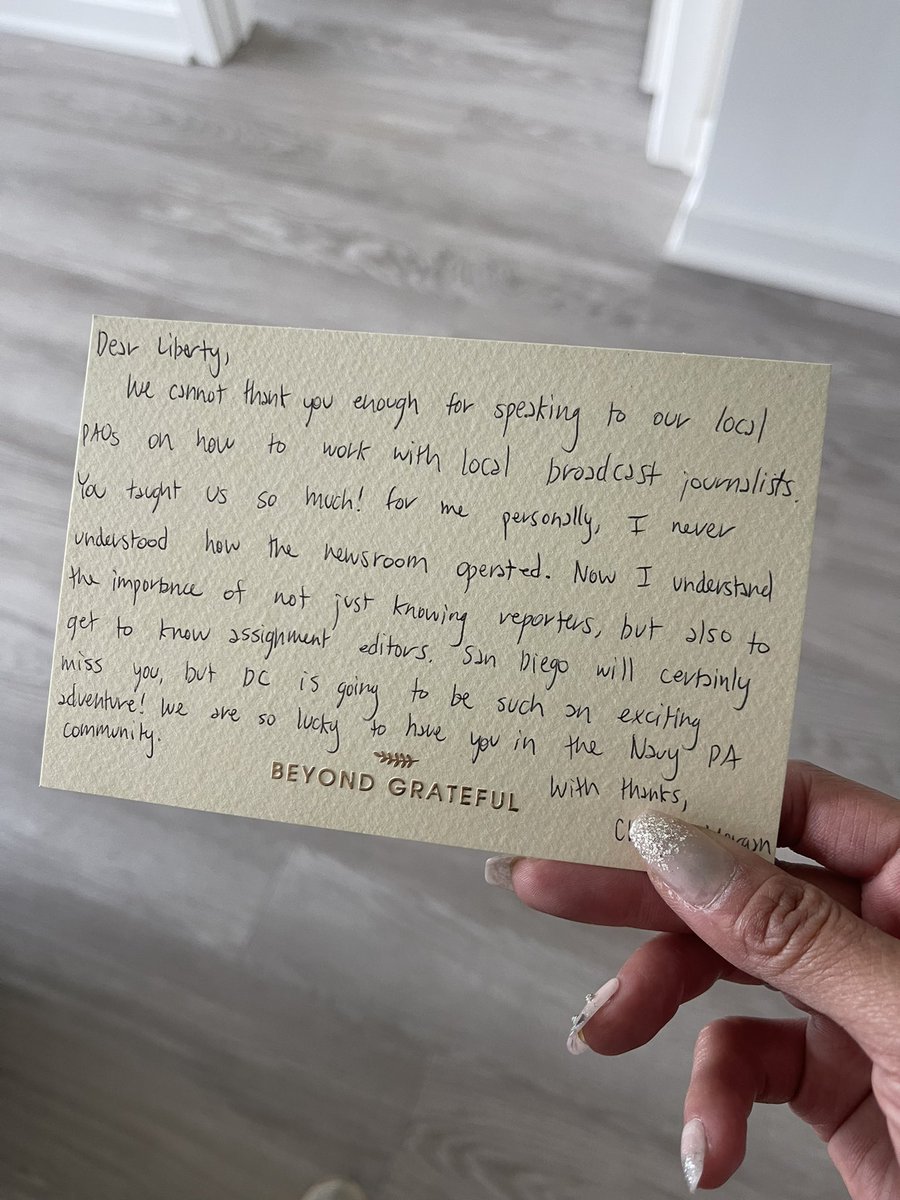 Dear Liberty,
We cannot thank you enough for speaking to our local
PAOs on how to work with local broadcast journalists.
You taught us so much! For me personally, I never
understood how the newsroom operated. Now I understand
the importance of not just knowing reporters, but also to
get to know assignment editors. San Diego will certainly
miss you, but DC is going to be such an exciting
adventure! We are so lucky to have you in the Navy PA
community.
BEYOND GRATEFUL
With thanks,